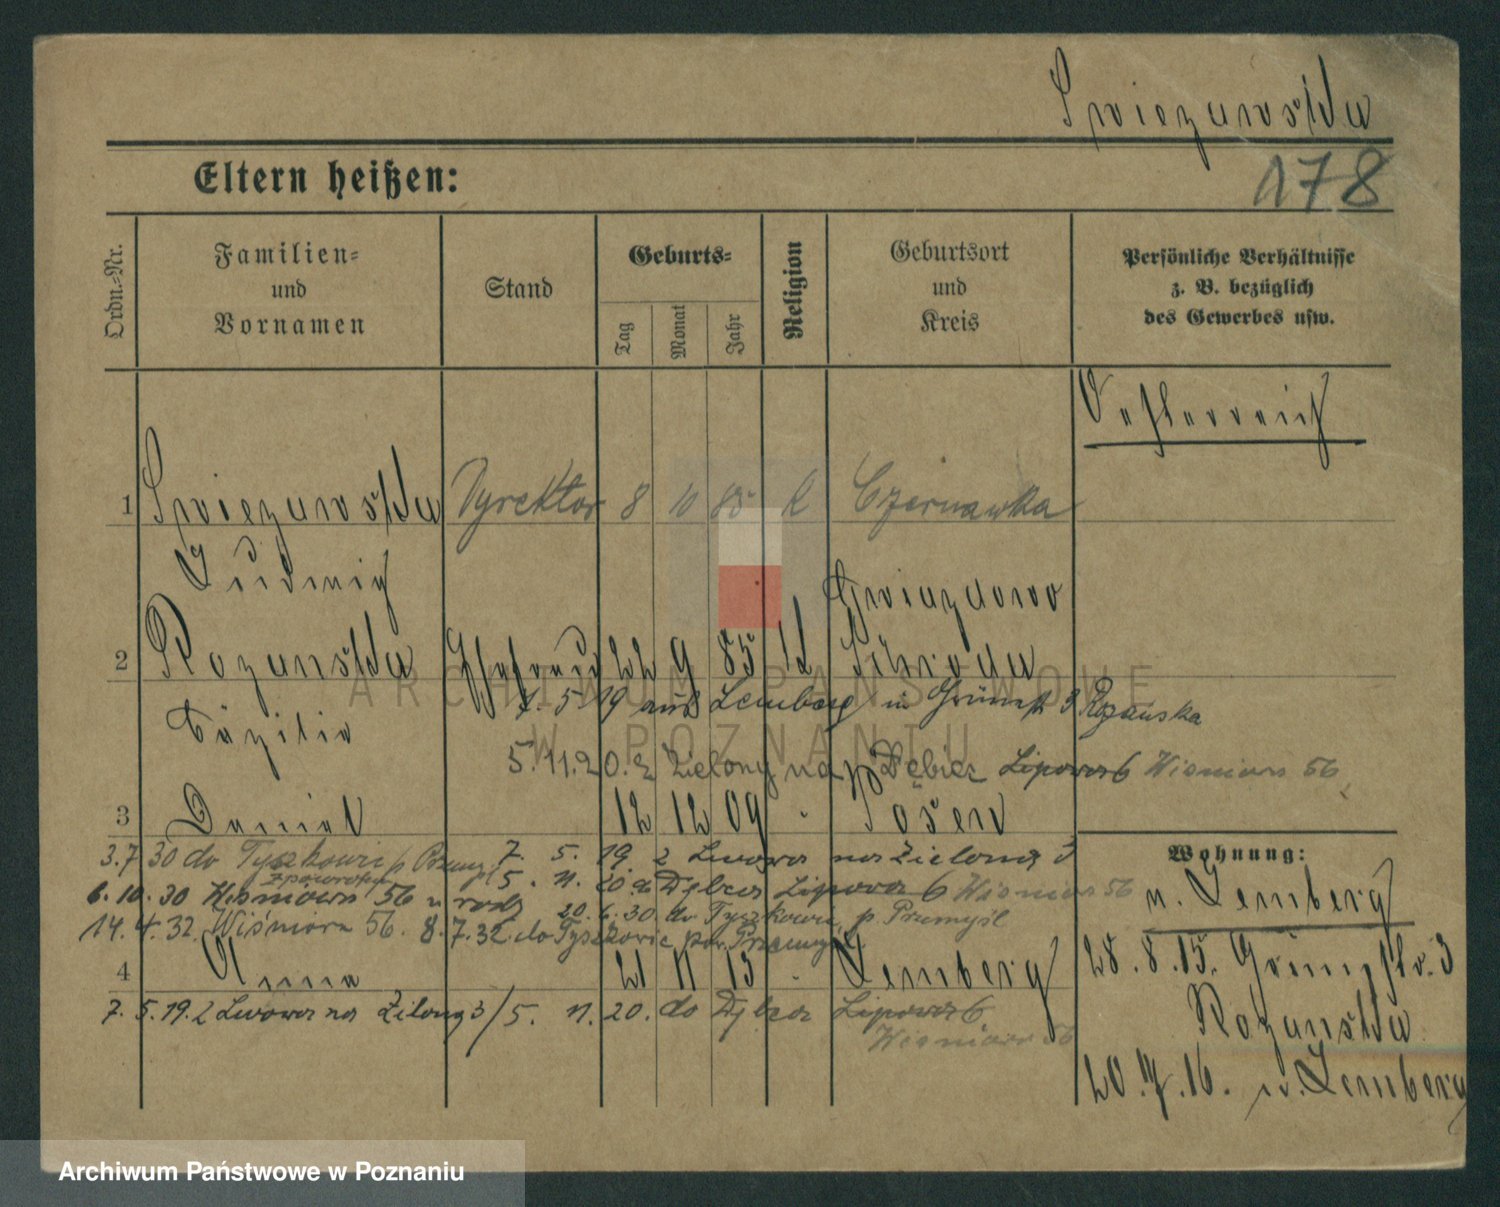 Swiezawska
178
Eltern heißen:
Ordn.-Nr.
Familien-
und
Vornamen
Stand
Geburts-
Tag
Monat
Jahr
Religion
Geburtsort
und
Kreis
Persönliche Verhältnisse
z. B. bezüglich
des Gewerbes usw.
Oesterreich
1 Swiezawski Dyrektor 8 10 85 k Czernawka
Ludwig
Gwiazdowo
2 Rozanska Ehefrau 22 9 85 k Schroda
7. 5. 19 aus Lemberg in Grünstr 3 Rozanska
Cäzilie
5. 11. 20. z Zielony na Dębiec Lipowa 6 Wiśniowa 56
3 Daniel 12 12 09 Posen
3. 7 30 do Tyszkowic p Przemyśl 7. 5. 19. z Lwowa na Zieloną 3
Wohnung:
zpowrotem 5. 11. 20. do Dębca Lipowa 6 Wiśniowa 56
6. 10. 30 Wiśniowa 56 u rodz
n. Lemberg
20. 6. 30. do Tyszkowic, p. Przemyśl
14. 4. 32. Wiśniowa 56. 8. 7. 32. do Tyszkowic pow. Przemyśl
4 Anna 21 11 13 Lemberg
28. 8. 15. Grünestr. 3
7. 5. 19. z Lwowa na Zieloną 3/5. 11. 20. do Dębca Lipowa 6
Rozanska
Wiśniowa 56
20. 16. n. Lemberg
ARCHIWUM PAŃSTWOWE
W POZNANIU
Archiwum Państwowe w Poznaniu